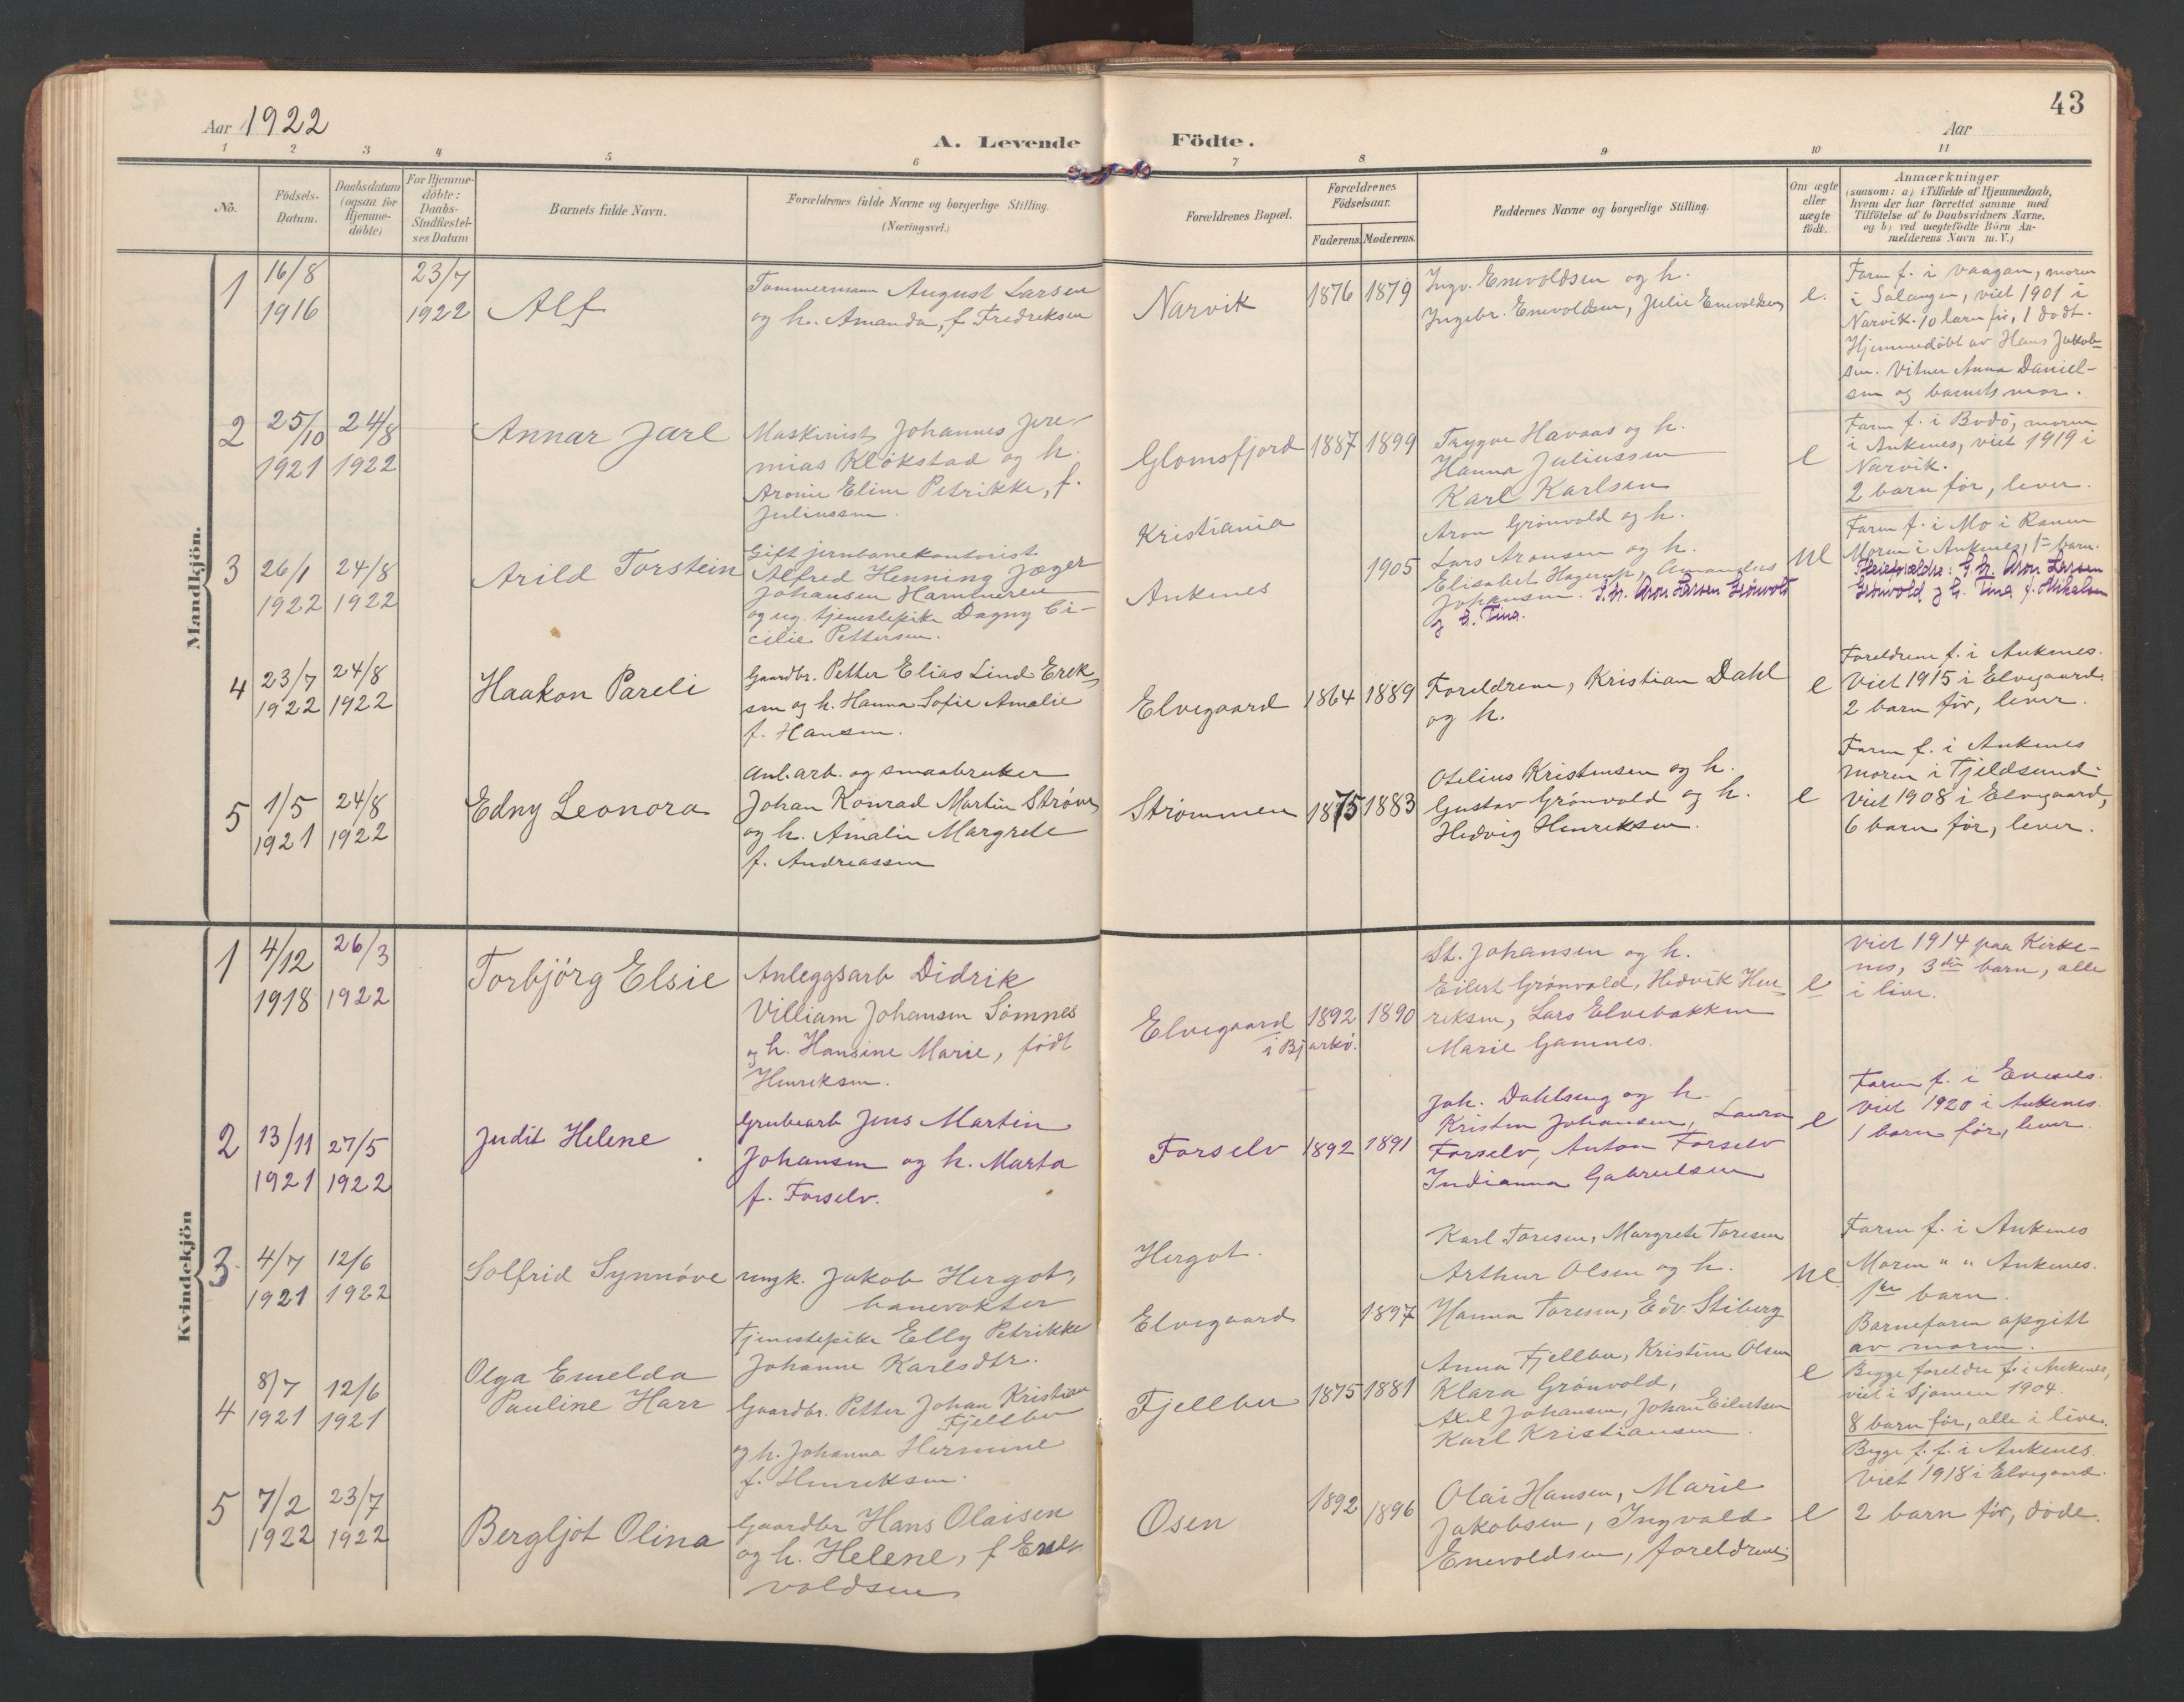 Aar 1922
A. Levende Födte.
43
Aar
1 2 3 4 5 6 7 8 9 10 11
No.
Födsels-
Datum.
Daabsdatum
(ogsaa for
Hjemme-
döbte)
For Hjemme-
döbte:
Daabs-
Stadfæstel-
ses Datum
Barnets fulde Navn.
Forældrenes fulde Navne og borgerlige Stilling.
(Næringsvei.)
Forældrenes Bopæl.
Forældrenes
Födselsaar.
Faderens. Moderens.
Faddernes Navne og borgerlige Stilling.
Om ægte
eller
uægte
födt.
Anmærkninger
(saasom: a) i Tilfælde af Hjemmedaab,
hvem der har forrettet samme med
Tilföielse af to Daabsvidners Navne.
og b) ved uægtefödte Börn An-
melderens Navn m. V.)
Mandkjön.
1
16/8
1916
23/7
1922
Alf
Tømmermann August Larsen
og h. Amanda, f Fredriksen
Narvik
1876 1879
Ingv. Enevoldsen og h.
Ingebr. Enevoldsen, Julie Enevoldsen
e.
Faren f. i Vaagan, moren
i Salangen, viet 1901 i
Narvik. 10 barn før, 1 dødt.
Hjemmedøbt av Hans Jakob-
sen. Vitner Anna Daniel-
sen og barnets mor.
2
25/10
1921
24/8
1922
Annar Jarl
Maskinist Johannes Jere-
mias Kløkstad og h.
Aronie Eline Petrikke, f.
Juliussen.
Glomsfjord
1887 1899
Trygve Havaas og h.
Hanna Juliussen
Karl Karlsen
e
Faren f. i Bodø, moren
i Ankenes, viet 1919 i
Narvik.
2 barn før, lever.
3
26/1
1922
24/8
1922
Arild Torstein
Gift jernbanekontorist
Alfred Henning Jæger
Johansen Hammeren
og ug. tjenestepike Dagny Ci-
cilie Pettersen.
Kristiania
Ankenes
1905
Aron Grønvold og h.
Lars Aronsen og h.
Elisabet Hagerup, Amandus
Johansen. G.br. Aron Larsen Grønvold
og h. Tina.
ue
Faren f. i Mo i Ranen
Moren i Ankenes, 1ste barn.
Pleieforældre: G.br. Aron Larsen
Grønvold og h. Tina f. Mikalsen
4
23/7
1922
24/8
1922
Haakon Pareli
Gaardbr. Petter Elias Lind Erik-
sen og h. Hanna Sofie Amalie
f. Hansen.
Elvegaard
1864 1889
Foreldrene, Kristian Dahl
og h.
e
Foreldrene f. i Ankenes.
Viet 1915 i Elvegaard.
2 barn før, lever.
5
1/5
1921
24/8
1922
Edny Leonora
Anl.arb. og smaabruker
Johan Konrad Martin Strømnes
og h. Amalie Margrete
f. Andreassen
Strømmen
1875 1883
Otelius Kristensen og h.
Gustav Grønvold og h.
Hedvig Henriksen.
e
Faren f. i Ankenes
moren i Tjeldsund.
Viet 1908 i Elvegaard,
6 barn før, lever.
Kvindekjön
1
4/12
1918
26/3
1922
Torbjørg Elsie
Anleggsarb Didrik
Villiam Johansen Sømnes
og h. Hansine Marie, født
Henriksen.
Elvegaard
i Bjarkø.
1892 1890
St. Johansen og h.
Eilert Grønvold, Hedvik Hen-
riksen, Lars Elvebakken
Marie Gamnes.
e
Viet 1914 paa Kirke-
nes, 3die barn, alle
i live.
2
13/11
1921
27/5
1922
Judit Helene
Grubearb Jens Martin
Johansen og h. Marta
f. Forselv.
Forselv
1892 1891
Joh. Dahlseng og h.
Kristen Johansen, Laura
Forselv, Anton Forselv
Indianna Gabrielsen
e
Faren f. i Evenes.
Viet 1920 i Ankenes.
1 barn før, lever.
3
4/7
1921
12/6
1922
Solfrid Synnøve
ungk. Jakob Hergot,
banevokter
Tjenestepike Elly Petrikke
Johanne Karlsdtr.
Hergot.
Elvegaard
1897
Karl Toresen, Margrete Toresen
Arthur Olsen og h.
Hanna Toresen, Edv. Stiberg
ue.
Faren f. i Ankenes
Moren " " Ankenes.
1ste barn.
Barnefaren opgitt
av moren.
4
8/7
1921
12/6
1921
Olga Emelda
Pauline Harr
Gaardbr. Petter Johan Kristian
Fjellbu
og h. Johanna Hermine
f. Henriksen.
Fjellbu
1875 1881
Anna Fjellbu, Kristine Olsen
Klara Grønvold,
Axel Johansen, Johan Eilertsen
Karl Kristiansen.
e
Begge foreldre f. i Ankenes,
viet i Sjomen 1904.
8 barn før, alle i live.
5
7/2
1922
23/7
1922
Bergljot Olina
Gaardbr Hans Olaisen
og h. Helene, f Ene-
voldsen
Osen
1892 1896
Olai Hansen, Marie
Jakobsen, Ingvald
Enevoldsen, foreldrene
e
Begge f. f. i Ankenes.
Viet 1918 i Elvegaard.
2 barn før, døde.